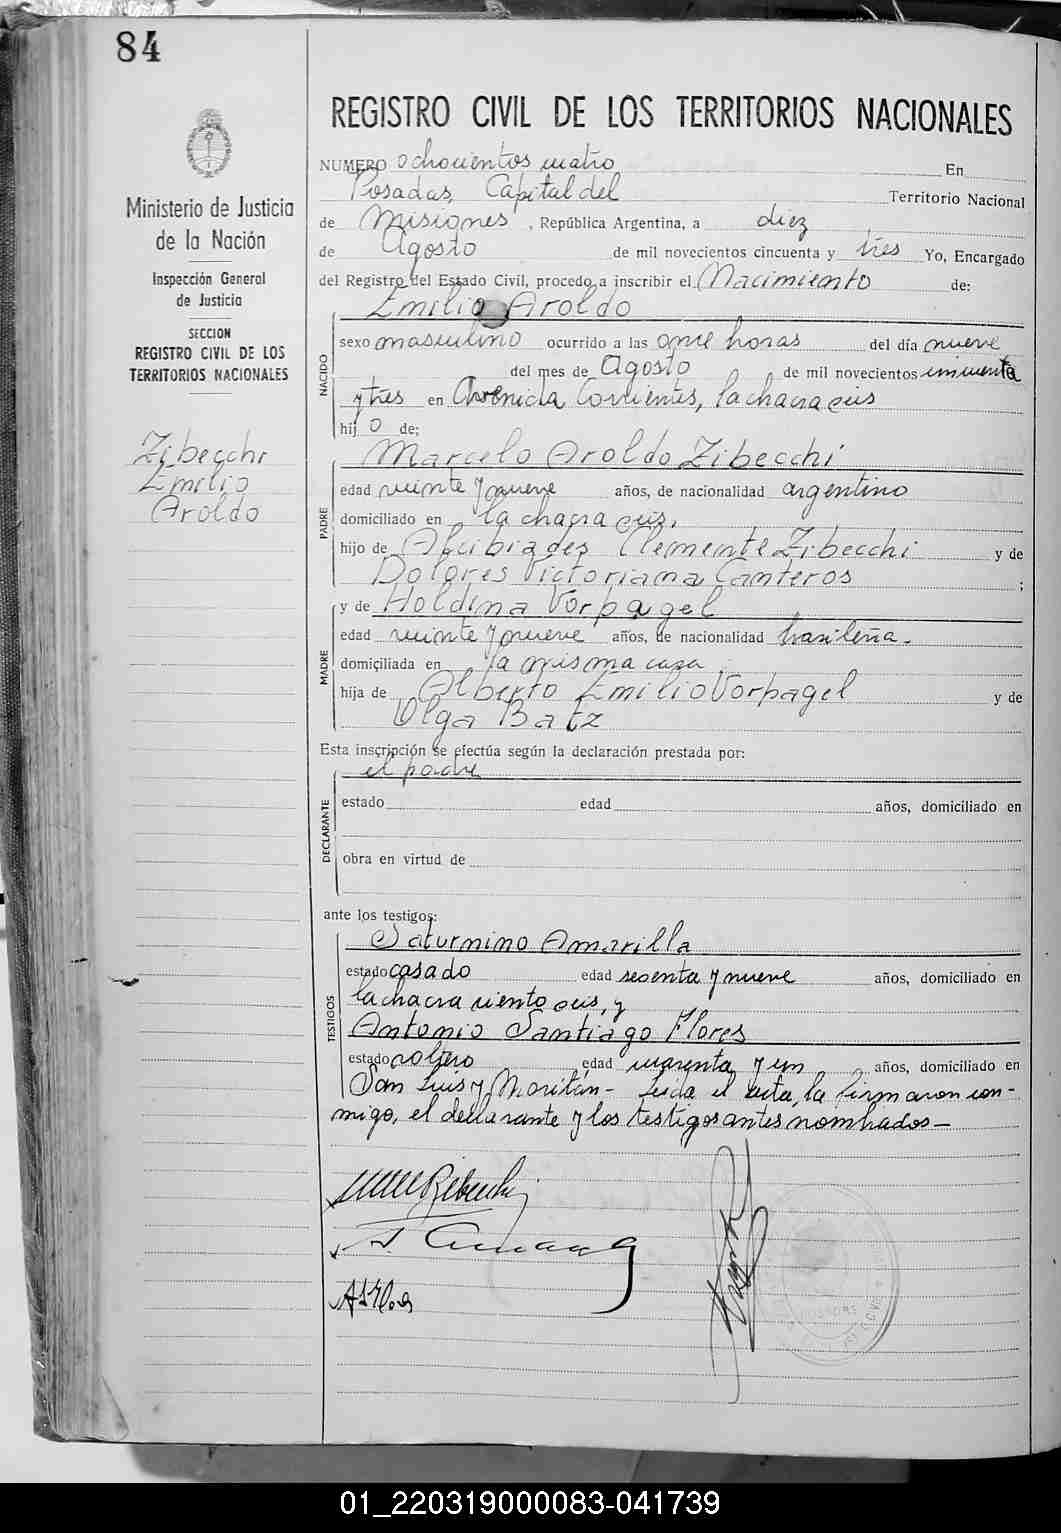 84
REGISTRO CIVIL DE LOS TERRITORIOS NACIONALES
Ministerio de Justicia
de la Nación
Inspección General
de Justicia
SECCION
REGISTRO CIVIL DE LOS
TERRITORIOS NACIONALES
Zibecchi
Emilio
Aroldo
NUMERO ochocientos cuatro En
Posadas, Capital del Territorio Nacional
de Misiones, República Argentina, a diez
de Agosto de mil novecientos cincuenta y tres Yo, Encargado
del Registro del Estado Civil, procedo a inscribir el Nacimiento de:
Emilio Aroldo
NACIDO
sexo masculino ocurrido a las once horas del día nueve
del mes de Agosto de mil novecientos cincuenta
y tres en Avenida Corrientes, la chacra seis
hijo de;
Marcelo Aroldo Zibecchi
PADRE
edad veinte y nueve años, de nacionalidad argentino
domiciliado en la chacra seis.
hijo de Alcibiades Clemente Zibecchi y de
Dolores Victoriana Canteros ;
y de Holdina Vorpagel
MADRE
edad veinte y nueve años, de nacionalidad brasileña.
domiciliada en la misma casa
hija de Alberto Emilio Vorpagel y de
Olga Batz
Esta inscripción se efectúa según la declaración prestada por:
el padre
DECLARANTE
estado edad años, domiciliado en
obra en virtud de
ante los testigos:
Saturnino Amarilla
TESTIGOS
estado casado edad sesenta y nueve años, domiciliado en
la chacra ciento seis, y
Antonio Santiago Flores
estado soltero edad cuarenta y un años, domiciliado en
San Luis y Moritán - Leida el acta, la firmaron con-
migo, el declarante y los testigos antes nombrados -
01_220319000083-041739